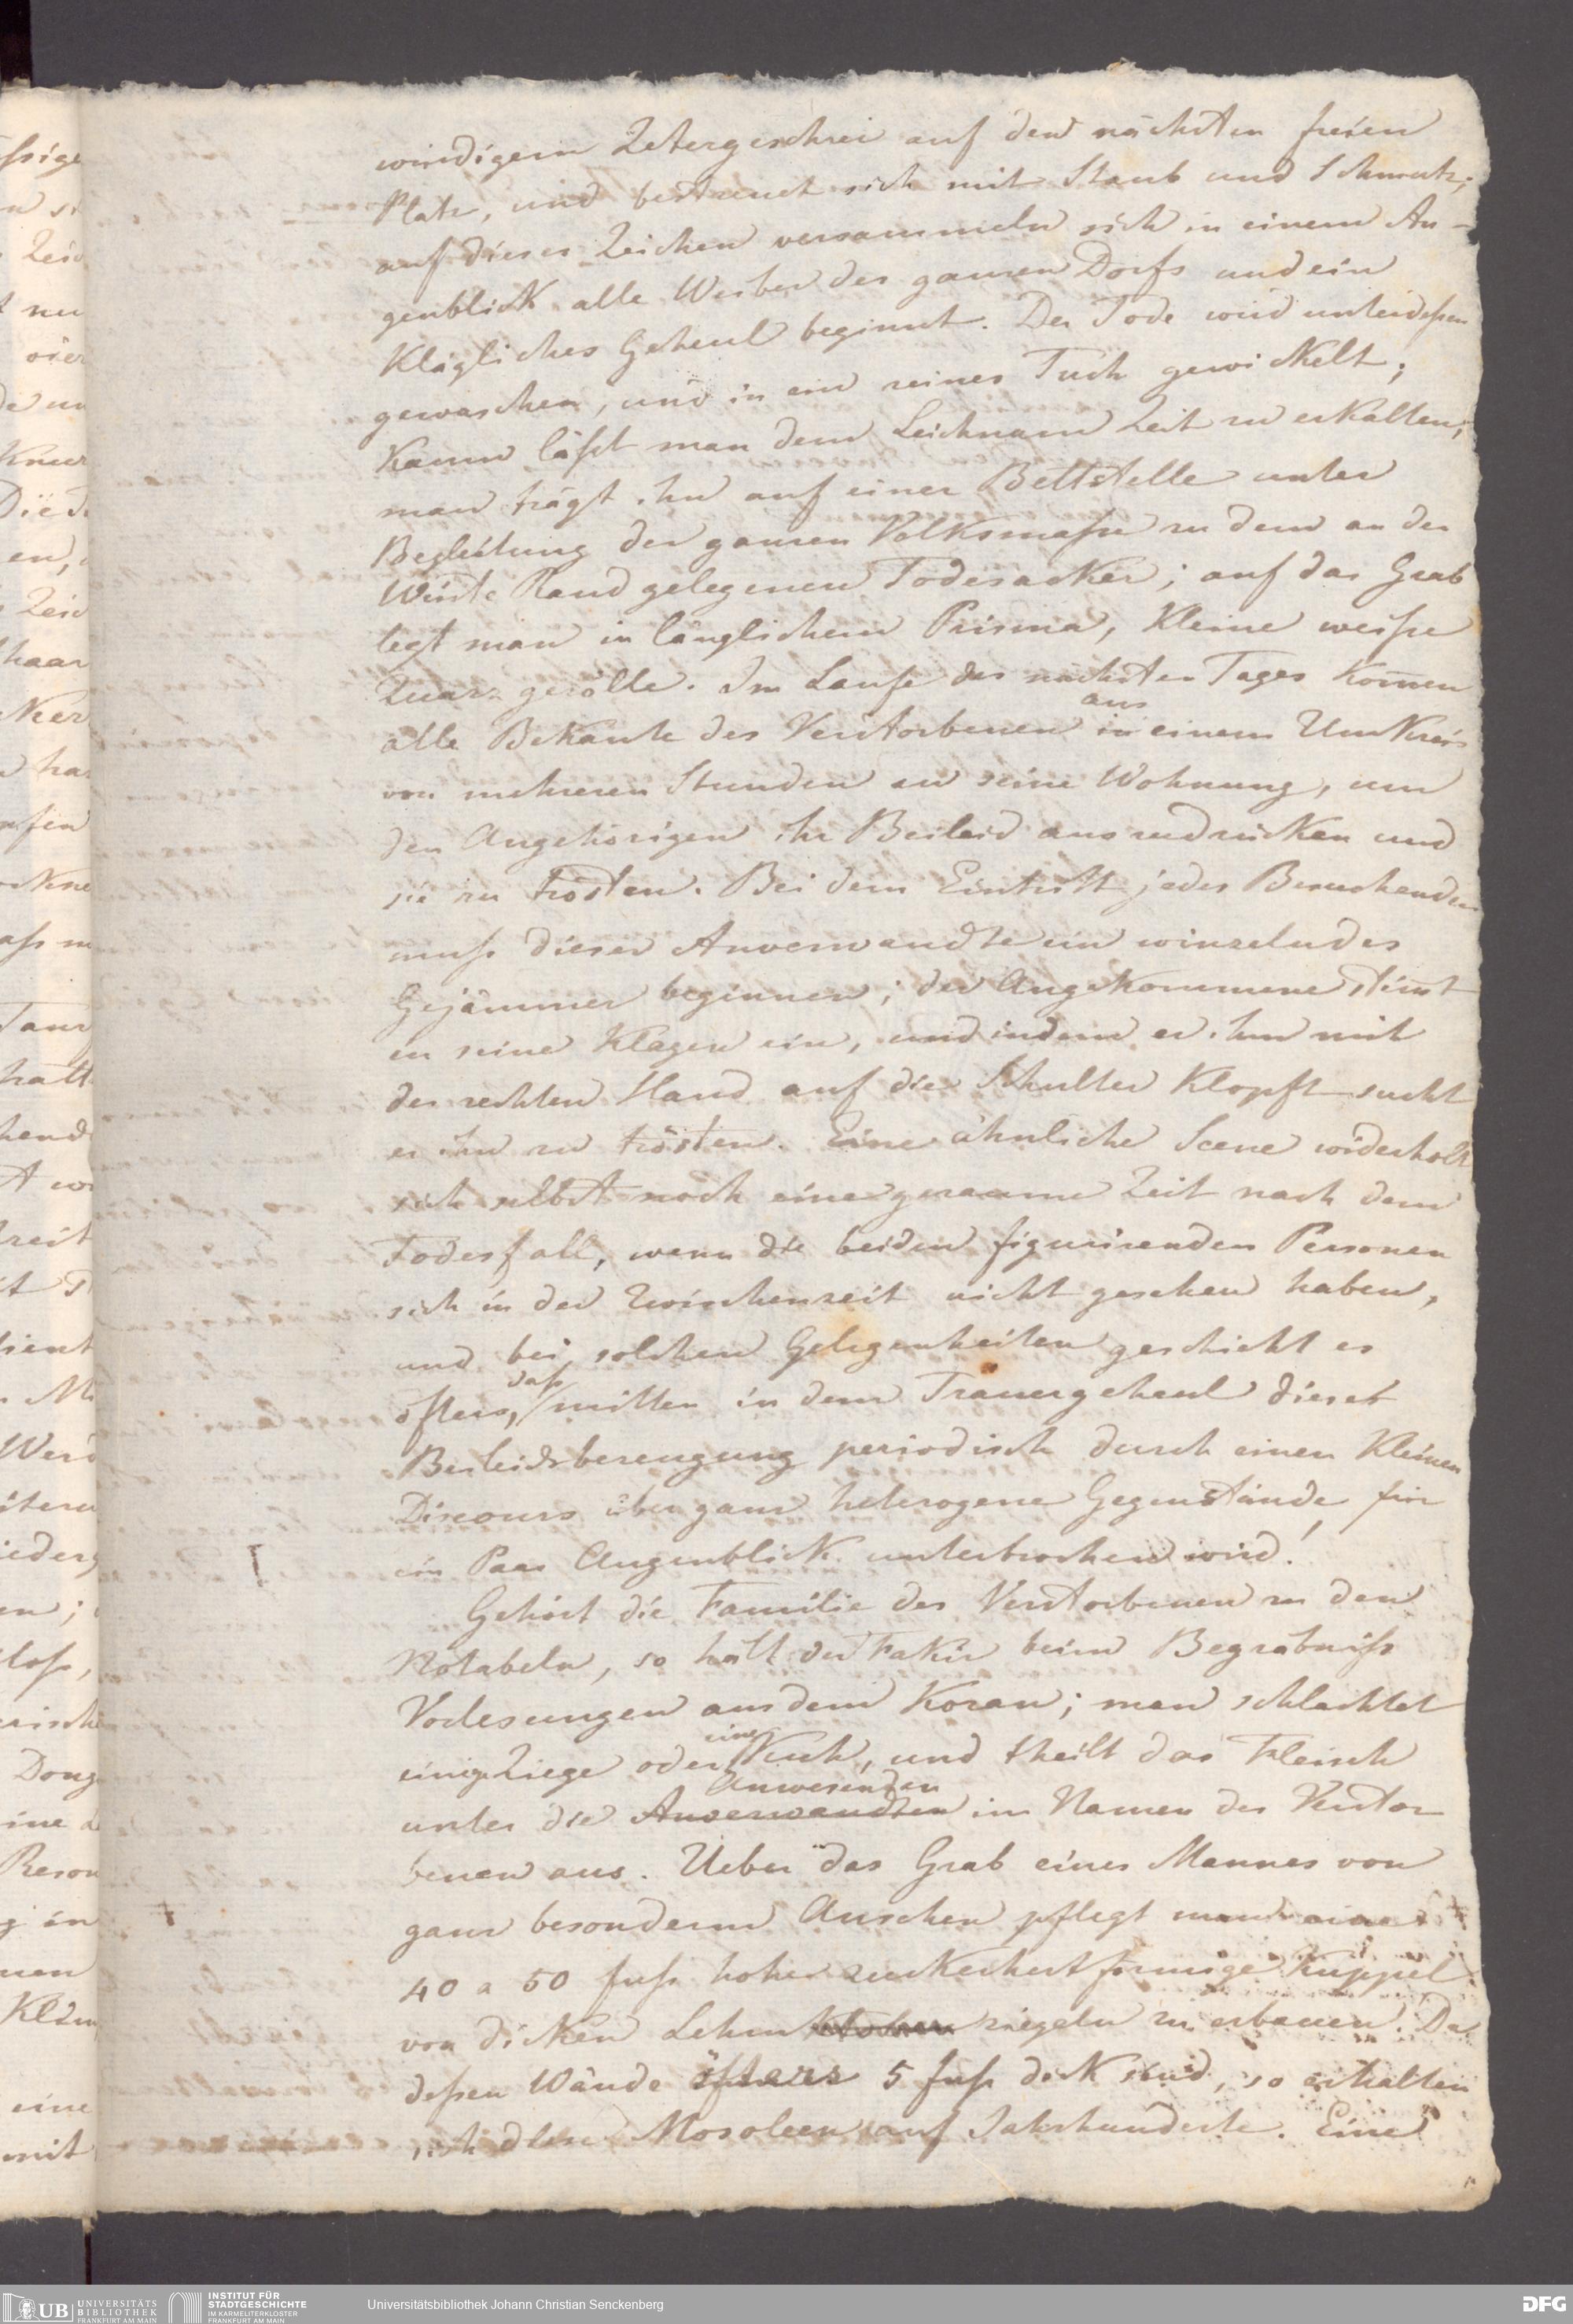 windigem Zetergeschrei auf den nächsten freien
Platz, und bestreuet sich mit Staub und Schmutz;
auf dieses Zeichen versammeln sich in einem Au-
genblick alle Weiber des ganzen Dorfs und ein
Klägliches Geheul beginnt. Der Tode wird unterdeßen
gewaschen, und in ein reines Tuch gewickelt;
Kaum läßt man dem Leichnam Zeit zu erkalten;
man trägt ihn auf einer Bettstelle unter
Begleitung der ganzen Volksmaße zu dem an der
Wüste Rand gelegenen Todesacker; auf das Grab
legt man in länglichem Prisma, Kleine weiße
Quarz gerölle. Im Laufe des nächsten Tages Kom̄en
aus
alle Bekante des Verstorbenen in einem Umkreis
von mehreren Stunden an seine Wohnung, um
den Angehörigen ihr Beileid auszudrücken und
sie zu trösten. Bei dem Eintritt jedes Besuchenden
muß dieser Anverwandte ein winzelndes
Gejammer beginnen; der Angekommene stimt
in seine Klagen ein, und indem er ihn mit
der rechten Hand auf die Schulter Klopft sucht
er ihn zu trösten. Eine ähnliche Scene widerholt
sich selbst noch eine geraume Zeit nach dem
Todesfall, wenn die beiden figurirenden Personen
sich in der Zwischenzeit nicht gesehen haben,
und bei solchen Gelegenheiten geschicht es
daß
öfters, mitten in dem Trauergeheul dieser
Beileidsbezeugung periodisch durch einen Kleinen
Discours über ganz heterogene Gegenstände für
ein Paar Augenblick unterbrochen wird!
Gehört die Familie des Verstorbenen zu den
Notabeln, so hält der Fakir beim Begräbniß
Vorlesungen aus dem Koran; man schlachtet
eine
einige Ziege oder Kuh, und theilt das Fleisch
Anwesenden
unter die Anverwandten im Namen des Verstor
benen aus. Ueber das Grab eines Mannes von
ganz besonderm Ansehen pflegt man eine
40 a 50 fuß hohe zuckerhutförmige Kuppel
von dicken Lehm ziegeln zu erbauen. Da
deßen Wände öfters 5 fuß dick sind, so erhalten
sich diese Mosoleen auf Jahrhunderte. Eine
UB UNIVERSITÄTS
BIBLIOTHEK
FRANKFURT AM MAIN
INSTITUT FÜR
STADTGESCHICHTE
IM KARMELITERKLOSTER
FRANKFURT AM MAIN
Universitätsbibliothek Johann Christian Senckenberg
DFG